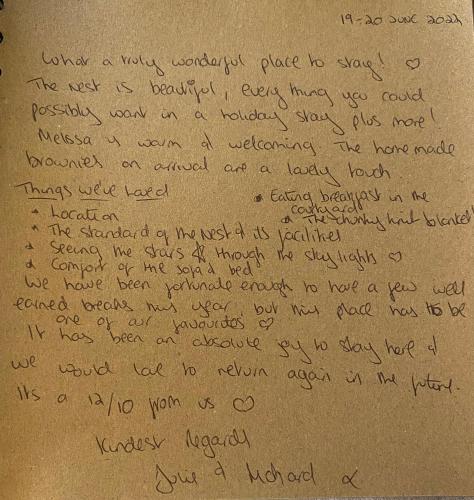 19-20 JUNE 2024
What a truly wonderful place to stay! ♡
The Nest is beautiful, everything you could
possibly want in a holiday stay plus more!
Melissa is warm & welcoming. The homemade
brownies on arrival are a lovely touch.
Things we've loved
* Location
* The standard of the Nest & its facilities
* Seeing the stars through the skylights ♡
* Comfort of the sofa & bed
* Eating breakfast in the
courtyard
* The chunky knit blanket!
We have been fortunate enough to have a few well
earned breaks this year, but this place has to be
one of our favourites ♡
It has been an absolute joy to stay here &
we would love to return again in the future.
Its a 12/10 from us ♡
Kindest Regards
&